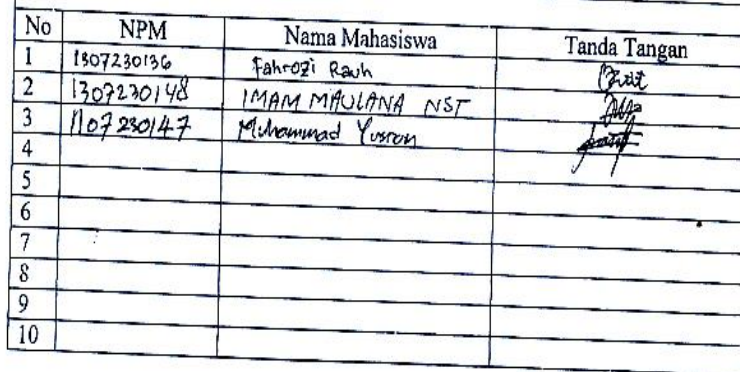 No NPM Nama Mahasiswa Tanda Tangan
1 1307230136 Fahrozi Rauh
2 1307230148 IMAM MAULANA NST
3 1107230147 Muhammad Yusron
4
5
6
7
8
9
10